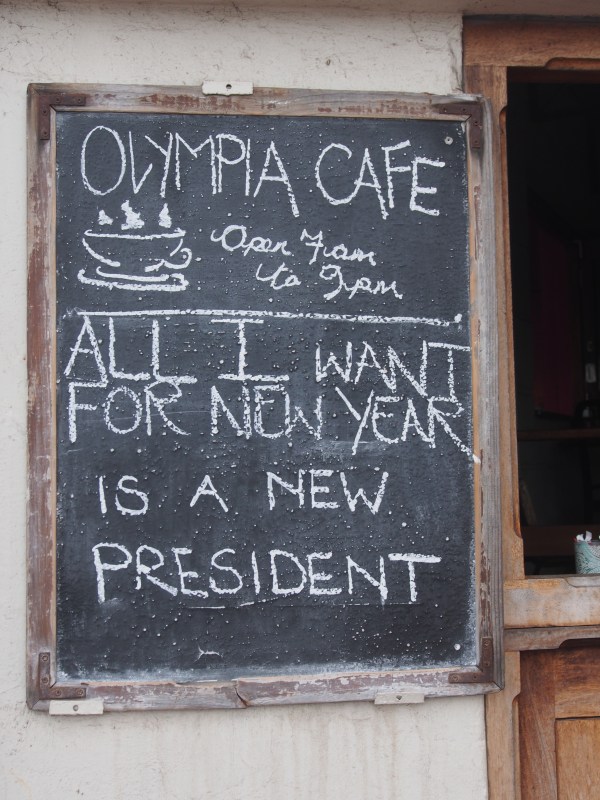 OLYMPIA CAFE
Open 7am
to 9pm
ALL I WANT
FOR NEW YEAR
IS A NEW
PRESIDENT